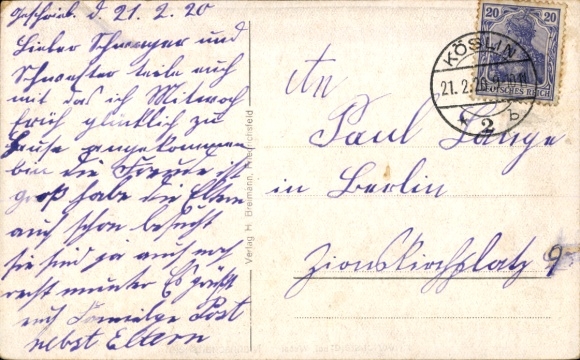 Geschrieb. d. 21. 2. 20
Lieber Schwager und
Schwester teile euch
mit das ich Mittwoch
früh glücklich zu
Hause angekommen
bin die Freude ist
groß habe die Eltern
auch schon besucht
sie sind ja auch noch
recht munter Es grüßt
euch Familie Post
nebst Eltern
Verlag H. Breimann, Friedrichsfeld
20 20
DEUTSCHES REICH
KÖSLIN
21.2.20
* 2 b
An
Paul Lange
in Berlin
Zionskirchplatz 9